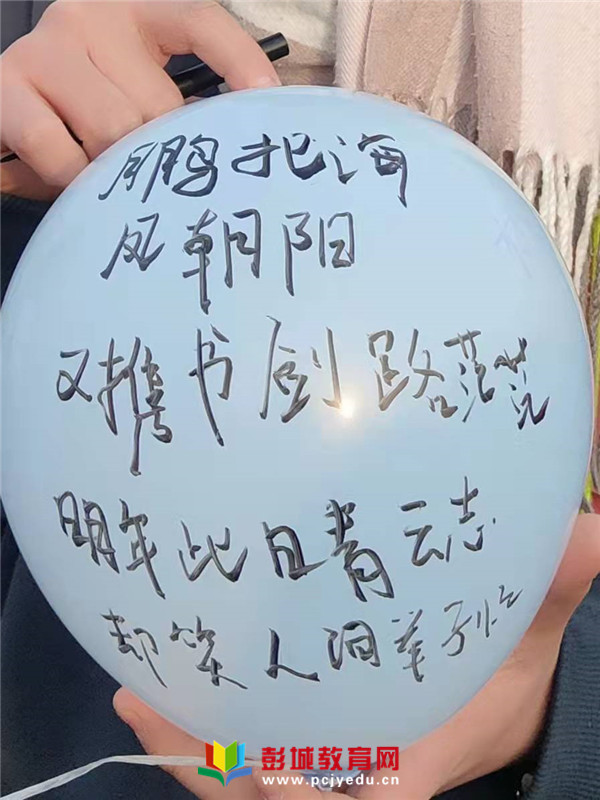 鹏北海
凤朝阳
又携书剑路茫茫
明年此日青云志
却笑人间举子忙
彭城教育网
www.pcjyedu.cn